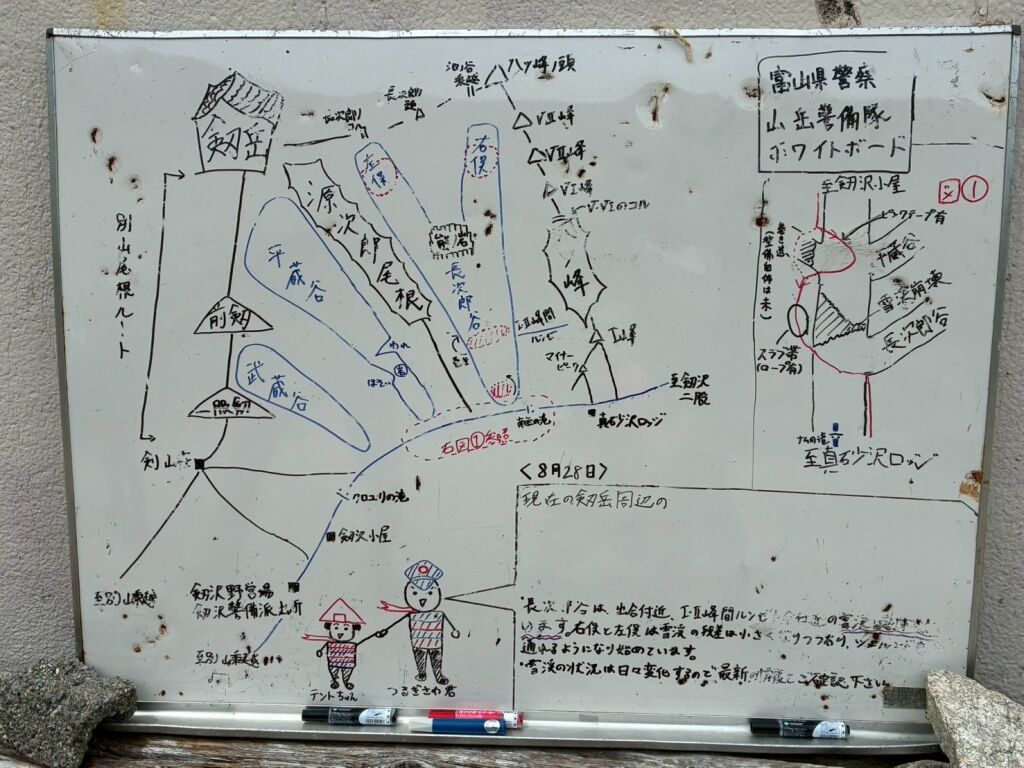 富山県警察
山岳警備隊
ホワイトボード
剱岳
別山尾根ルート
前剱
一服剱
剣山荘
至別山乗越
武蔵谷
平蔵谷
源次郎尾根
長次郎のコル
長次郎ノ頭
池ノ谷乗越
八ツ峰ノ頭
左俣
右俣
熊ノ岩
長次郎谷
Ⅷ峰
Ⅶ峰
Ⅵ峰
Ⅴ・Ⅵのコル
八ツ峰
Ⅰ・Ⅱ峰間
ルンゼ
マイナー
ピーク
Ⅰ峰
至剱沢
二股
真砂沢ロッジ
右図①参照
クロユリの滝
剱沢小屋
剱沢野営場
剱沢警備派出所
至別山乗越
テントちゃん
つるぎさわ君
図①
至剱沢小屋
ピンクテープ有
巻き道
(整備自体は未)
平蔵谷
雪渓崩壊
長次郎谷
スラブ帯
(ロープ有)
至真砂沢ロッジ
<8月28日>
現在の剱岳周辺の
・長次郎谷は、出合付近、Ⅰ・Ⅱ峰間ルンゼ
います。右俣と左俣は雪渓の残差は小さくなりつつあり、
通れるようになり始めています。
・雪渓の状況は日々変化するので、最新の情報をご確認下さい。